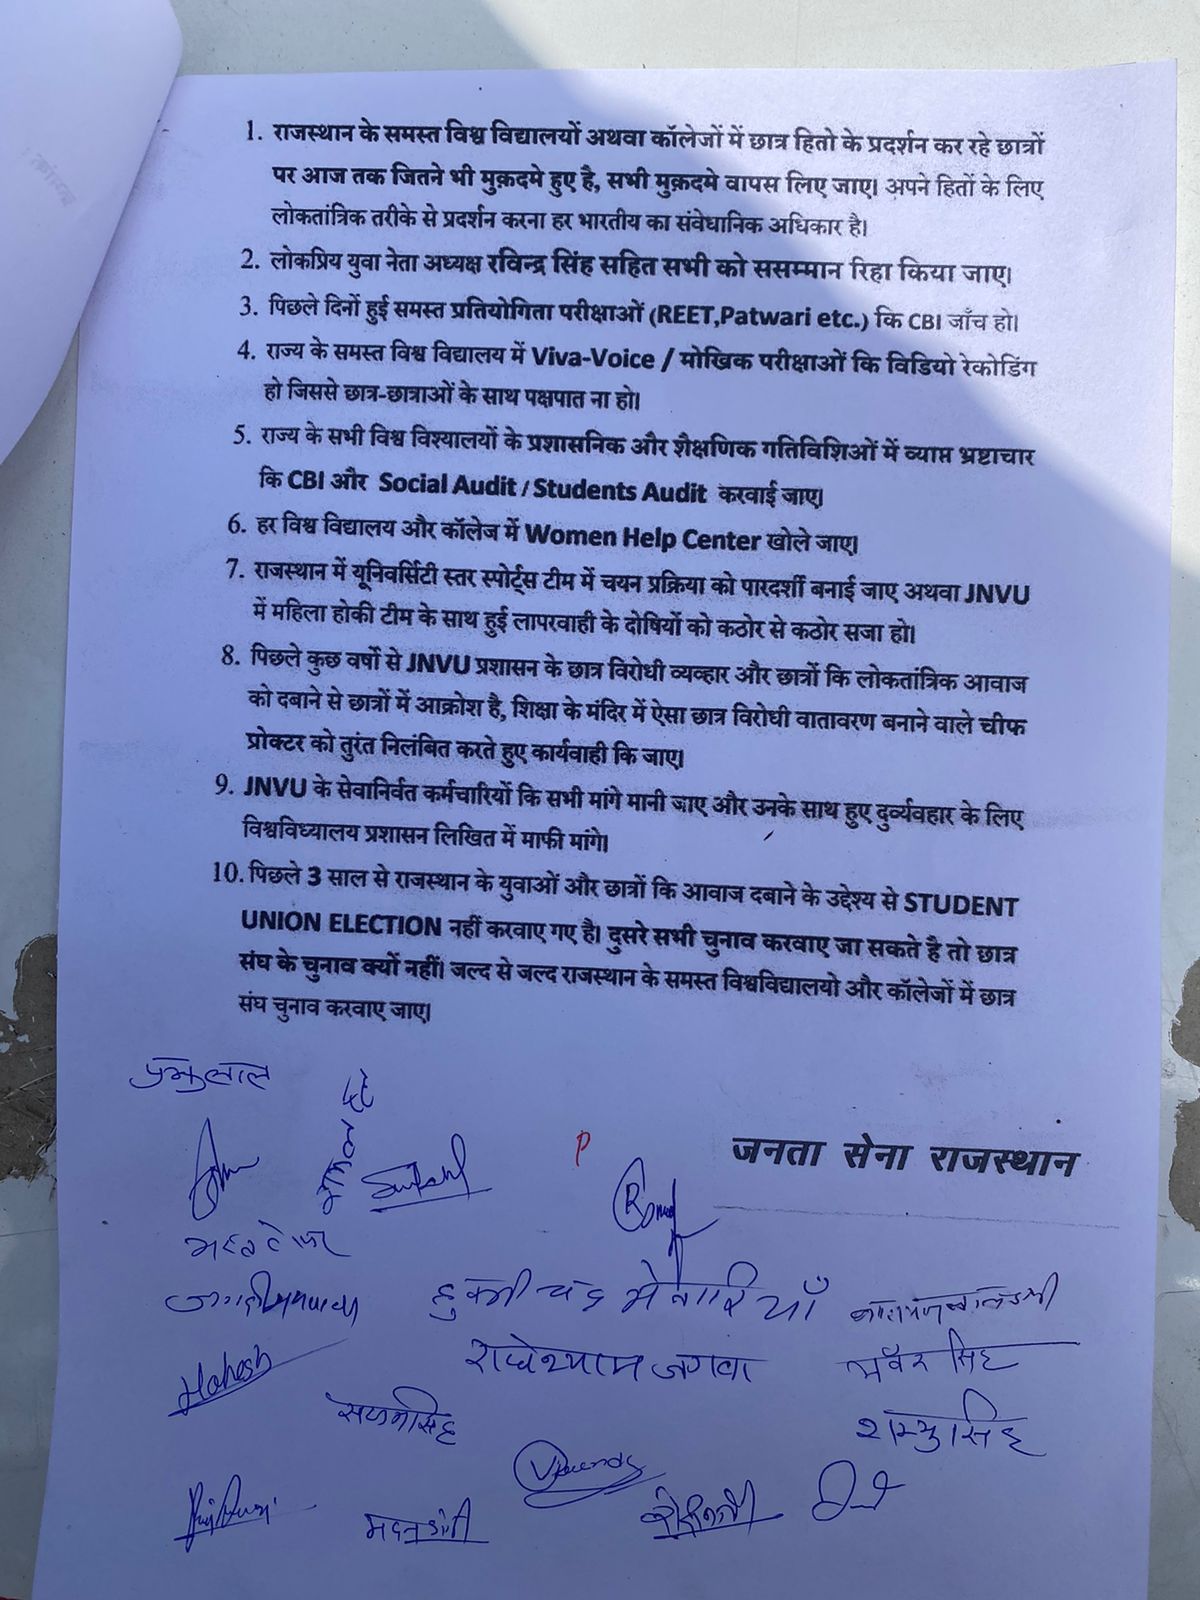 1. राजस्थान के समस्त विश्व विद्यालयों अथवा कॉलेजों में छात्र हितो के प्रदर्शन कर रहे छात्रों
पर आज तक जितने भी मुक़दमे हुए है, सभी मुक़दमे वापस लिए जाए। अपने हितों के लिए
लोकतांत्रिक तरीके से प्रदर्शन करना हर भारतीय का संवेधानिक अधिकार है।
2. लोकप्रिय युवा नेता अध्यक्ष रविन्द्र सिंह सहित सभी को ससम्मान रिहा किया जाए।
3. पिछले दिनों हुई समस्त प्रतियोगिता परीक्षाओं (REET,Patwari etc.) कि CBI जाँच हो।
4. राज्य के समस्त विश्व विद्यालय में Viva-Voice / मोखिक परीक्षाओं कि विडियो रेकोडिंग
हो जिससे छात्र-छात्राओं के साथ पक्षपात ना हो।
5. राज्य के सभी विश्व विश्यालयों के प्रशासनिक और शैक्षणिक गतिविशिओं में व्याप्त भ्रष्टाचार
कि CBI और Social Audit / Students Audit करवाई जाए।
6. हर विश्व विद्यालय और कॉलेज में Women Help Center खोले जाए।
7. राजस्थान में यूनिवर्सिटी स्तर स्पोर्ट्स टीम में चयन प्रक्रिया को पारदर्शी बनाई जाए अथवा JNVU
में महिला होकी टीम के साथ हुई लापरवाही के दोषियों को कठोर से कठोर सजा हो।
8. पिछले कुछ वर्षो से JNVU प्रशासन के छात्र विरोधी व्यव्हार और छात्रों कि लोकतांत्रिक आवाज
को दबाने से छात्रों में आक्रोश है, शिक्षा के मंदिर में ऐसा छात्र विरोधी वातावरण बनाने वाले चीफ
प्रोक्टर को तुरंत निलंबित करते हुए कार्यवाही कि जाए।
9. JNVU के सेवानिर्वत कर्मचारियों कि सभी मांगे मानी जाए और उनके साथ हुए दुर्व्यवहार के लिए
विश्वविध्यालय प्रशासन लिखित में माफी मांगे।
10. पिछले 3 साल से राजस्थान के युवाओं और छात्रों कि आवाज दबाने के उद्देश्य से STUDENT
UNION ELECTION नहीं करवाए गए है। दुसरे सभी चुनाव करवाए जा सकते है तो छात्र
संघ के चुनाव क्यों नहीं। जल्द से जल्द राजस्थान के समस्त विश्वविद्यालयो और कॉलेजों में छात्र
संघ चुनाव करवाए जाए।
P
जनता सेना राजस्थान
हुक्मीचंद मेनारियाँ
Mahesh
राधेश्याम जगवा
भंवरसिंह
सज्जनसिंह
शम्भुसिंह